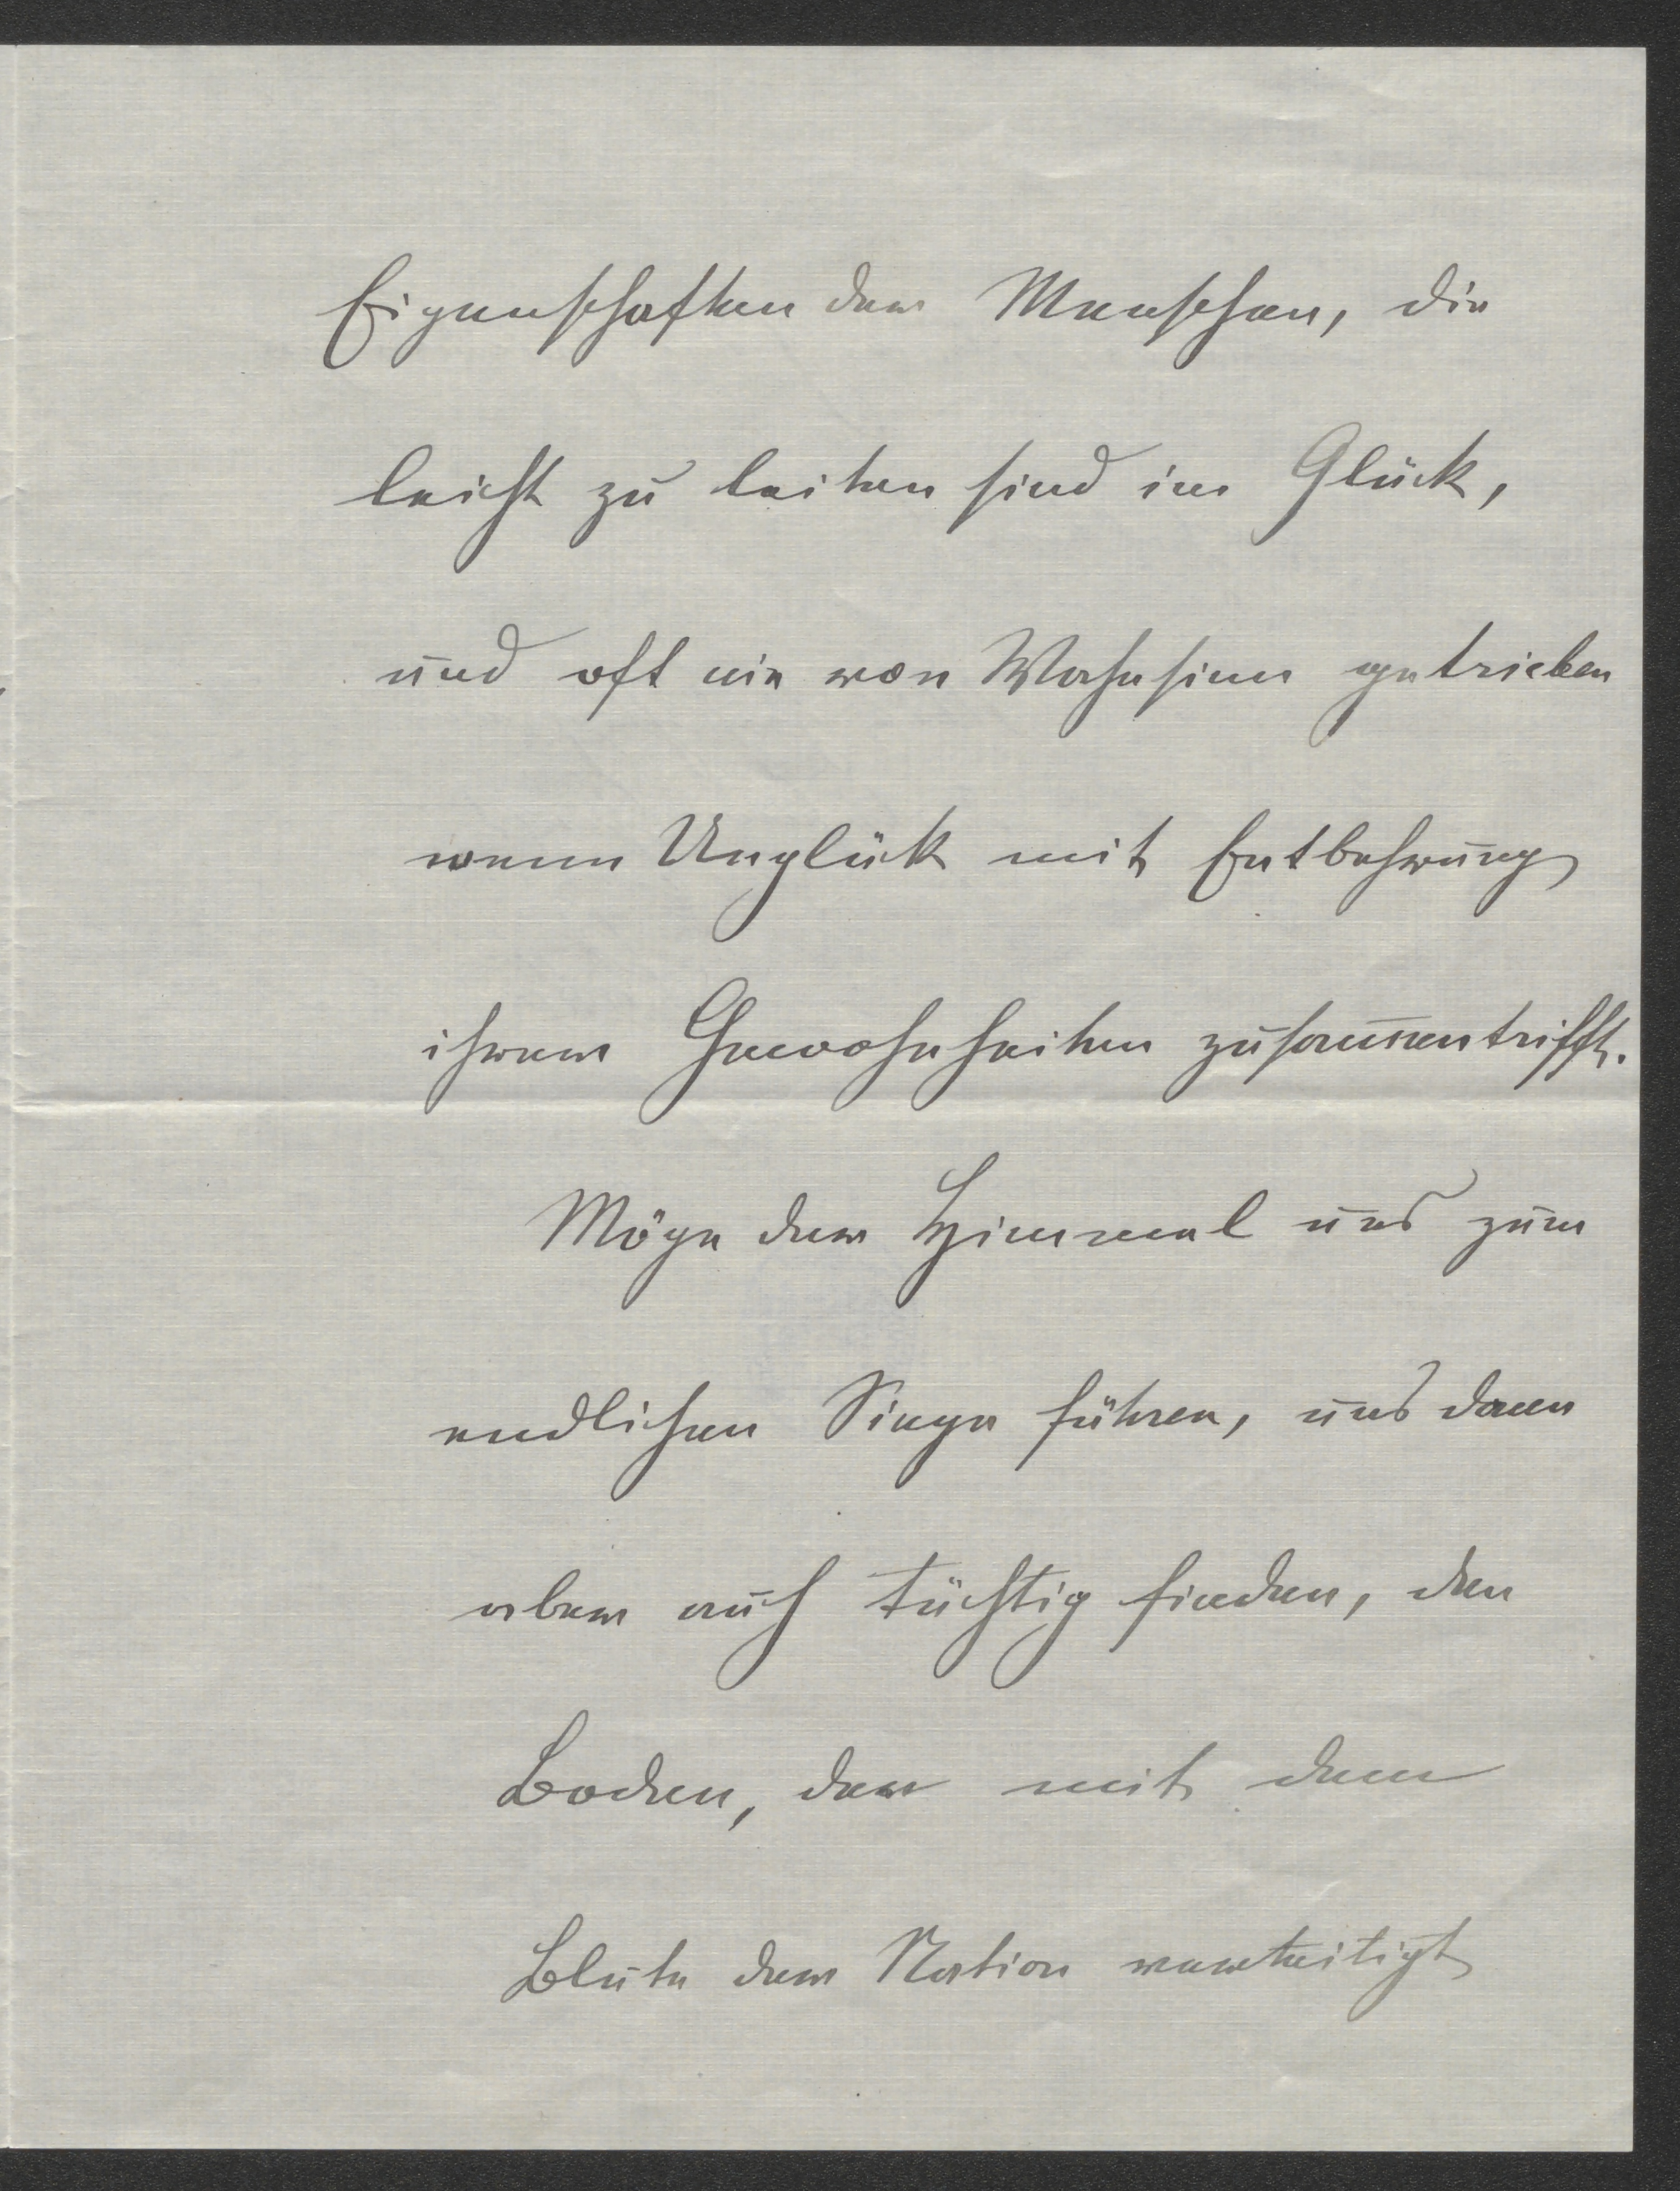 Eigenschaften der Menschen, die
leicht zu leiten sind im Glück,
und oft wie von Wahnsinn getrieben
wenn Unglück mit Entbehrung
ihrer Gewohnheiten zusammentrifft.
Möge der Himmel uns zum
endlichen Siege führen, uns dann
aber auch tüchtig finden, den
Boden, der mit dem
Blute der Nation verteitigt